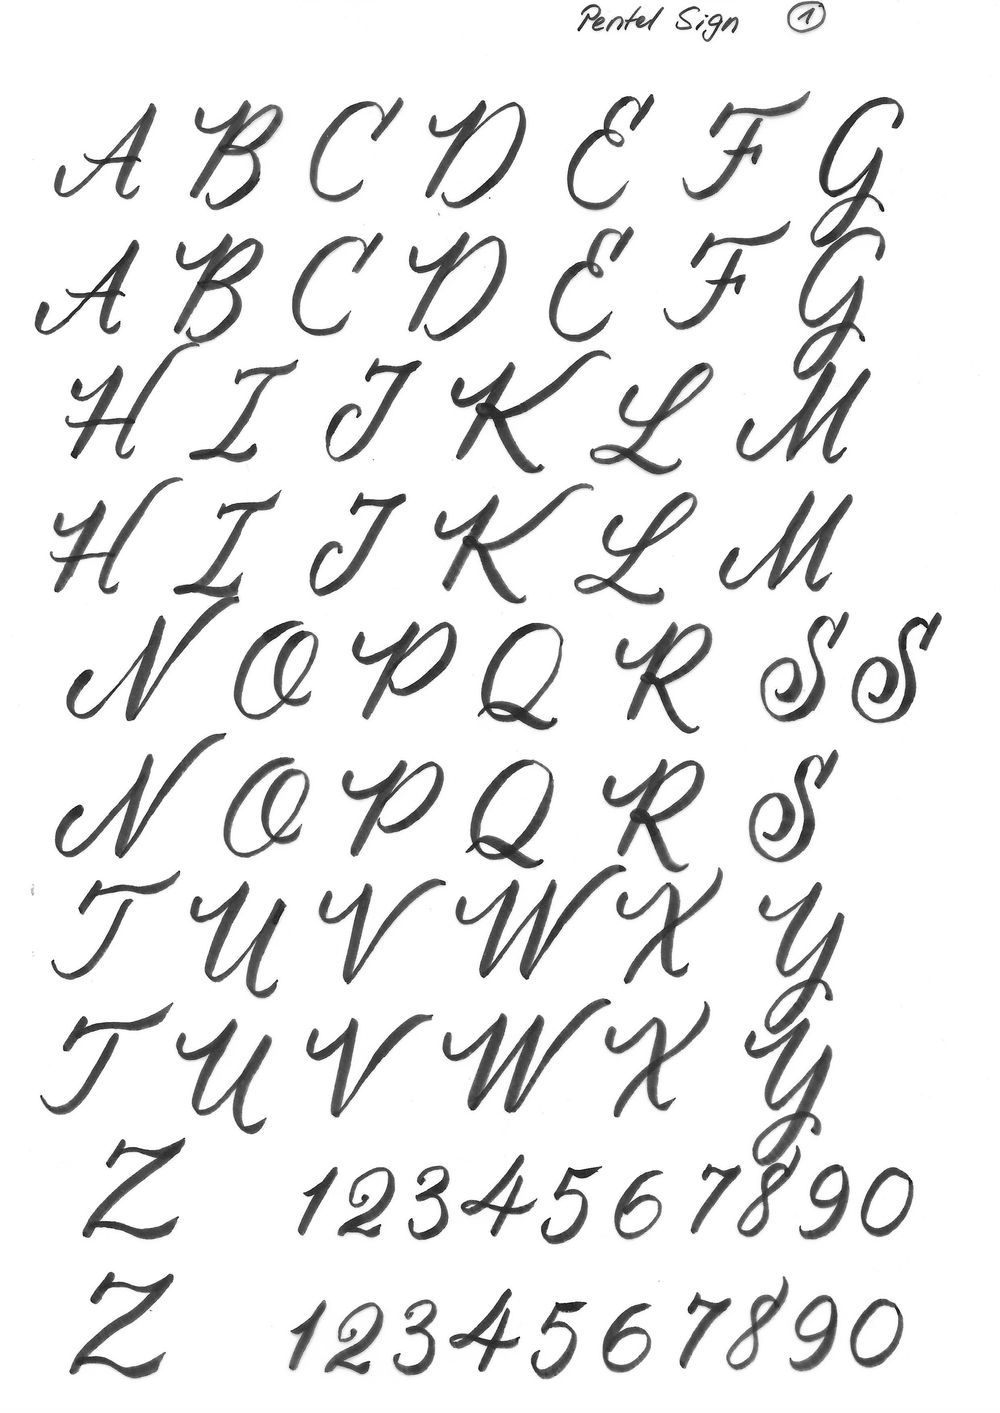 Pentel Sign 1
A B C D E F G
A B C D E F G
H I J K L M
H I J K L M
N O P Q R S S
N O P Q R S
T U V W X Y
T U V W X Y
Z 1 2 3 4 5 6 7 8 9 0
Z 1 2 3 4 5 6 7 8 9 0